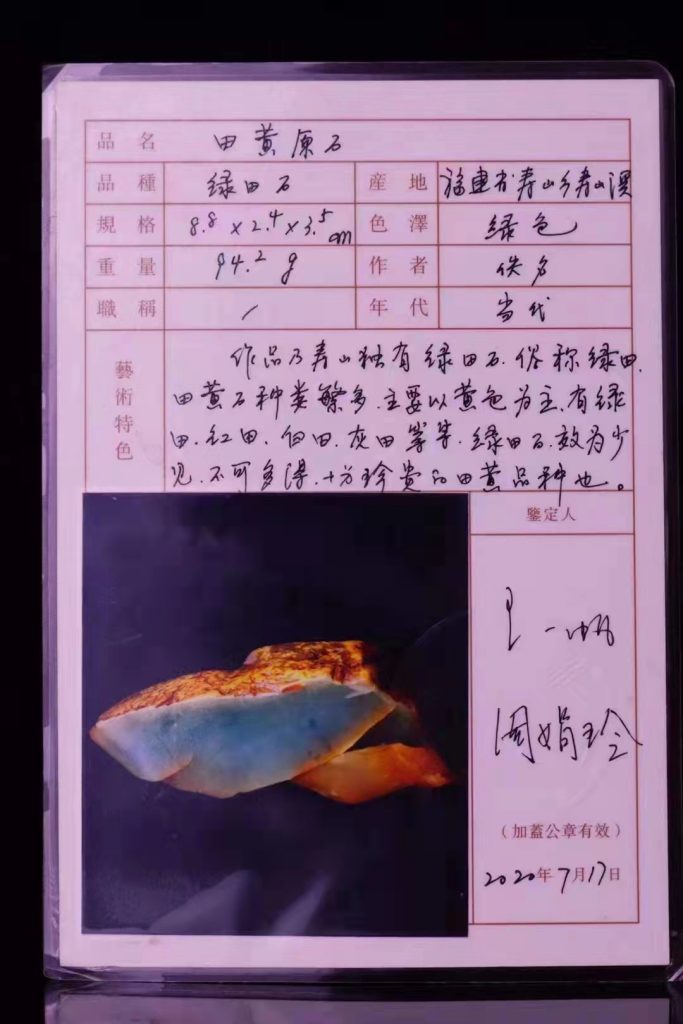 品名 田黄原石
品種 绿田石 産地 福建省寿山乡寿山溪
規格 8.8×2.4×3.5cm 色澤 绿色
重量 94.2g 作者 佚名
職稱 / 年代 当代
藝術特色
作品乃寿山独有绿田石.俗称绿田.
田黄石种类繁多.主要以黄色为主.有绿
田.红田.白田.灰田等等.绿田石.效为少
见.不可多得.十分珍贵的田黄品种也。
鑒定人
王一帆
周娟玲
(加蓋公章有效)
2020年7月17日